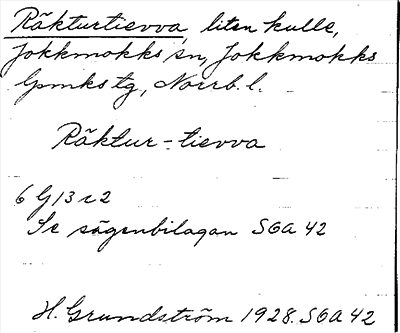 Räkturtievva, liten kulle,
Jokkmokks sn, Jokkmokks
lpmks tg, Norrb. l.
Räktur-tievva
6 G 13 c 2
Se sägenbilagan SOA 42
H. Grundström 1928. SOA 42